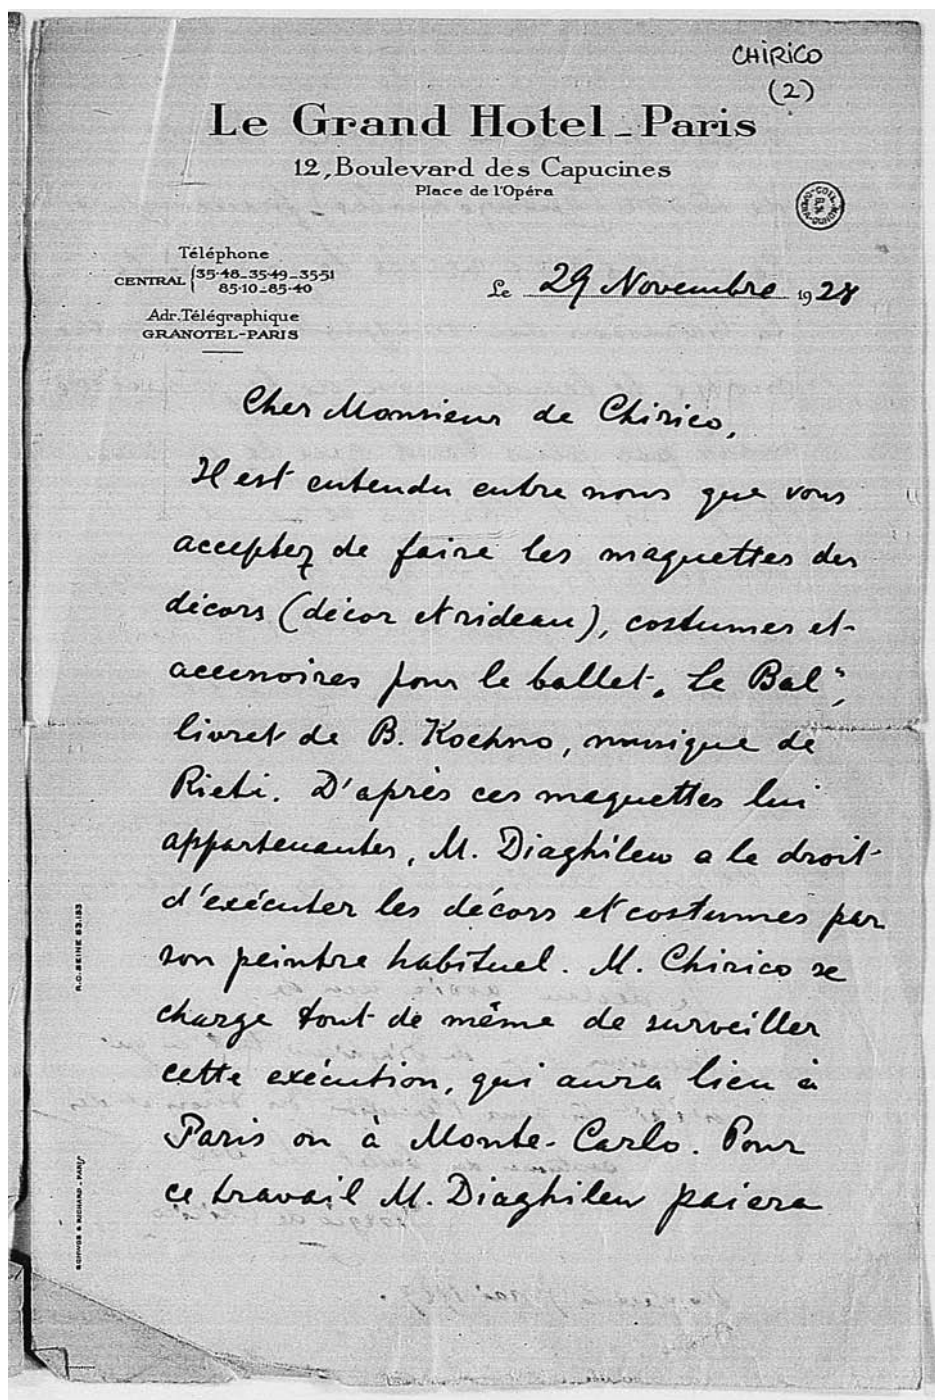 CHIRICO
(2)
Le Grand Hotel_Paris
12, Boulevard des Capucines
Place de l'Opéra
Téléphone
CENTRAL {35-48_35-49_35-51
85-10_85-40
Adr. Télégraphique
GRANOTEL-PARIS
Le 29 Novembre 1928
Cher Monsieur de Chirico,
Il est entendu entre nous que vous
acceptez de faire les maquettes des
décors (décor et rideau), costumes et
accessoires pour le ballet „Le Bal“,
livret de B. Kochno, musique de
Rieti. D'après ces maquettes lui
appartenantes, M. Diaghilew a le droit
d'exécuter les décors et costumes par
son peintre habituel. M. Chirico se
charge tout de même de surveiller
cette exécution, qui aura lieu à
Paris ou à Monte-Carlo. Pour
ce travail M. Diaghilew paiera
R.C. SEINE 83.183
SCHWOB & RICHARD - PARIS